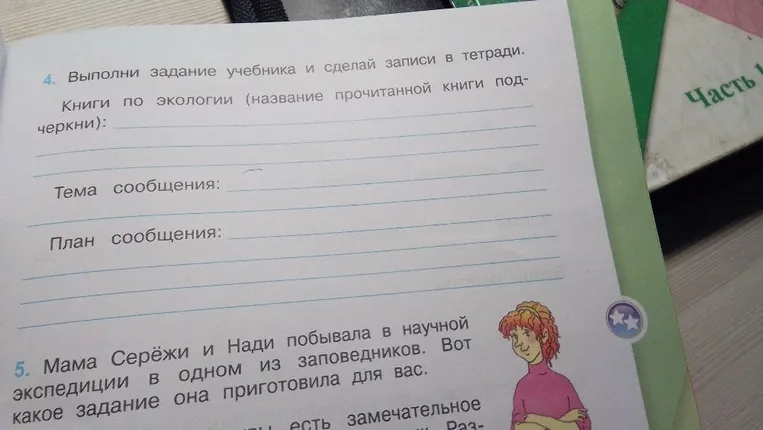 4. Выполни задание учебника и сделай записи в тетради.
Книги по экологии (название прочитанной книги под-
черкни):
Тема сообщения:
План сообщения:
5. Мама Серёжи и Нади побывала в научной
экспедиции в одном из заповедников. Вот
какое задание она приготовила для вас.
есть замечательное
Раз-
Часть 1